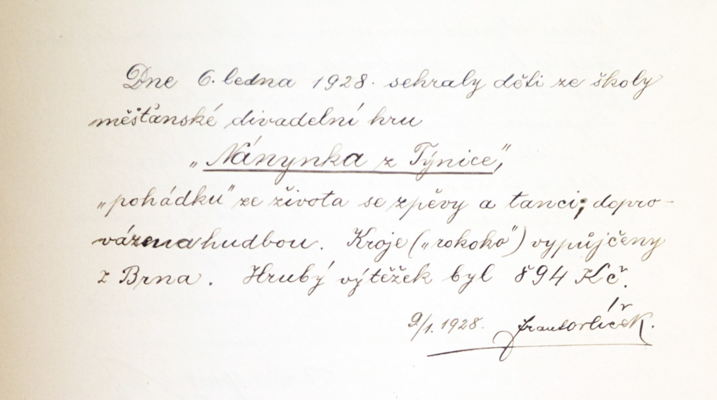 Dne 6. ledna 1928. sehrály děti ze školy
měšťanské divadelní hru
„Nánynka z Týnice",
„pohádku" ze života se zpěvy a tanci; dopro-
vázena hudbou. Kroje („rokoko") vypůjčeny
z Brna. Hrubý výtěžek byl 894 Kč.
9/1. 1928. Frant. Orlíček.